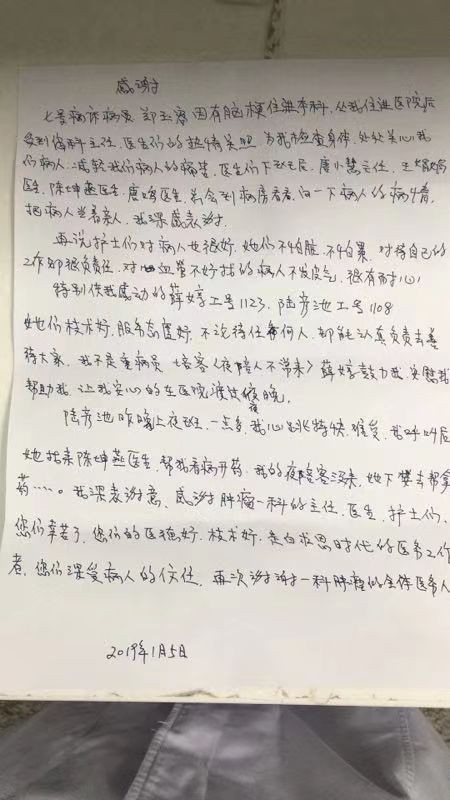 感谢
七号病床病员 郑玉 因有脑梗住进本科，从我住进医院后
受到你科主任、医生们的热情关照 为我检查身体，处处关心我
们病人：减轻我们病人的痛苦，医生们下班后，唐小慧主任，王
医生，陈坤燕医生，唐 医生总会到病房看看，问一下病人的病情，
把病人当着亲人，我深感表谢。
再说护士们对病人也很好，她们不怕脏，不怕累，对待自己的
工作却很负责任，对血管不好找的病人不发皮气，很有耐心
特别使我感动的薛婷工号1123，陆彦池工号1108
她们技术好，服务态度好，不论待任何人，都能认真负责去善
待大家，我不是重病员，培客〈夜陪人不常来〉薛婷鼓力我，安慰我
帮助我，让我安心的在医院渡过夜晚。
陆彦池昨晚上夜班，一点多，我心跳特快，难受，我呼叫后
她找来陈坤燕医生，帮我看病开药，我的夜陪客没来，她下楼去帮拿
药……。我深表谢意，感谢肿瘤一科的主任、医生、护士们、
您们辛苦了，您们的医德好，技术好，是白求恩时代的医务工作
者，您们深受病人的信任，再次谢谢一科肿瘤的全体医务人
2019年1月5日